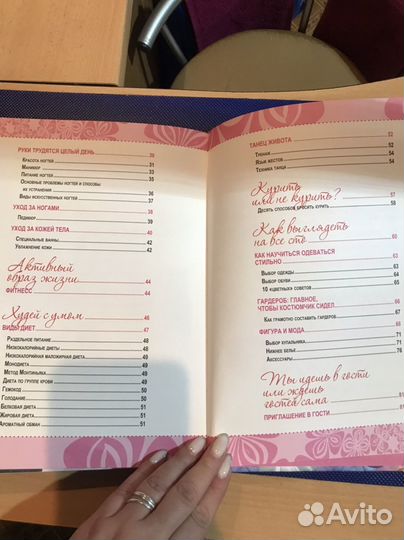 РУКИ ТРУДЯТСЯ ЦЕЛЫЙ ДЕНЬ 30
Красота ногтей 31
Маникюр 33
Питание ногтей 35
Основные проблемы ногтей и способы
их устранения 36
Виды искусственных ногтей 37
УХОД ЗА НОГАМИ 38
Педикюр 39
УХОД ЗА КОЖЕЙ ТЕЛА 40
Специальные ванны 42
Увлажнение кожи 42
Активный
образ жизни 44
ФИТНЕС 44
Худей с умом 46
ВИДЫ ДИЕТ 47
Раздельное питание 48
Низкокалорийные диеты 48
Низкокалорийная маложирная диета 49
Монодиета 49
Метод Монтиньяка 49
Диета по группе крови 50
Гемокод 50
Голодание 50
Белковая диета 51
Жировая диета 51
Ароматный обман 51
ТАНЕЦ ЖИВОТА 52
Тренаж 52
Язык жестов 54
Техника танца 54
Курить
или не курить? 57
Десять способов бросить курить 58
Как выглядеть
на все сто 60
КАК НАУЧИТЬСЯ ОДЕВАТЬСЯ
СТИЛЬНО 60
Выбор одежды 61
Выбор обуви 63
10 «цветных» советов 65
ГАРДЕРОБ: ГЛАВНОЕ,
ЧТОБЫ КОСТЮМЧИК СИДЕЛ 66
Как грамотно составить гардероб 67
ФИГУРА И МОДА
Выбор купальника 71
Нижнее белье 71
Аксессуары 76
Ты идешь в гости
или ждешь
гостей сама 81
ПРИГЛАШЕНИЕ В ГОСТИ 81
Avito